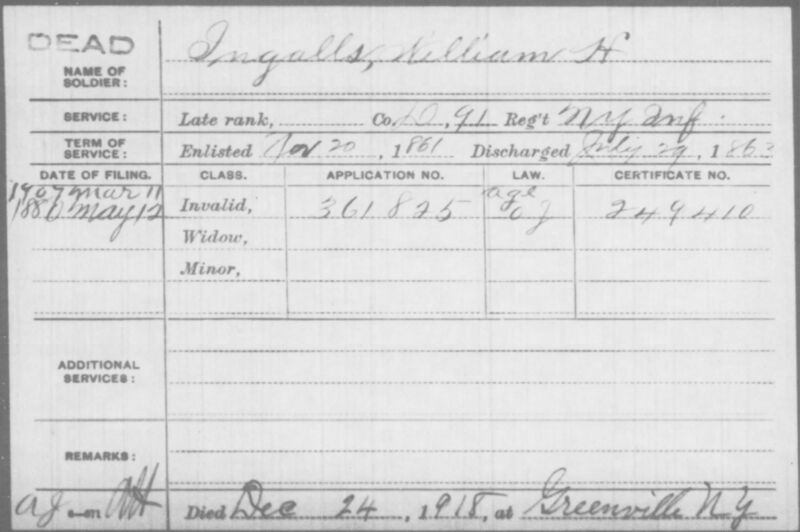 DEAD
Ingalls, William H
NAME OF
SOLDIER:
SERVICE: Late rank, Co. D, 91 Reg't NY Inf.
TERM OF
SERVICE: Enlisted Nov 20, 1861 Discharged July 29, 1863
DATE OF FILING. CLASS. APPLICATION NO. LAW. CERTIFICATE NO.
1907 Mar 11 age
1880 May 12 Invalid, 361825 249410
Widow,
Minor,
ADDITIONAL
SERVICES:
REMARKS:
Died Dec 24, 1918, at Greenville N.Y